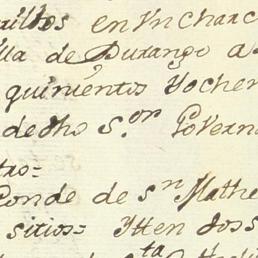 en Un Charc
lla de Durango a
quinientos Yochen
de dho s.or Governa
tas=
Conde de sn Mathe
sitios= Ytten dos s
ta